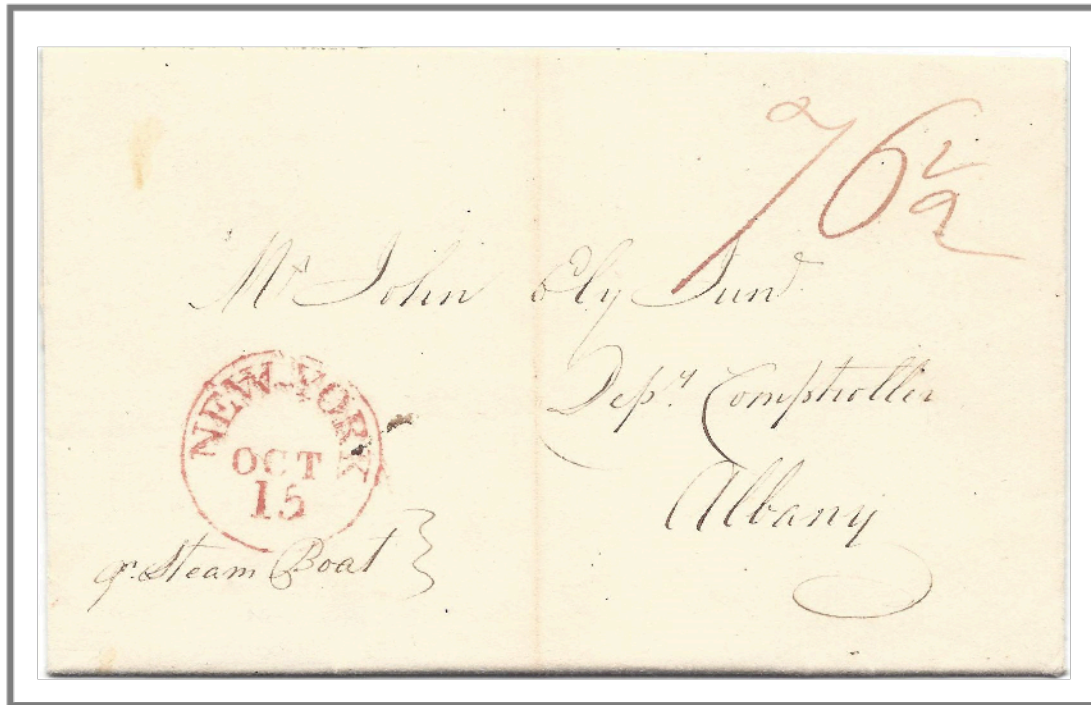 76 1/2
Mr. John Ely Junr.
Depy. Comptroller
Albany
NEW-YORK
OCT
15
pr. Steam Boat